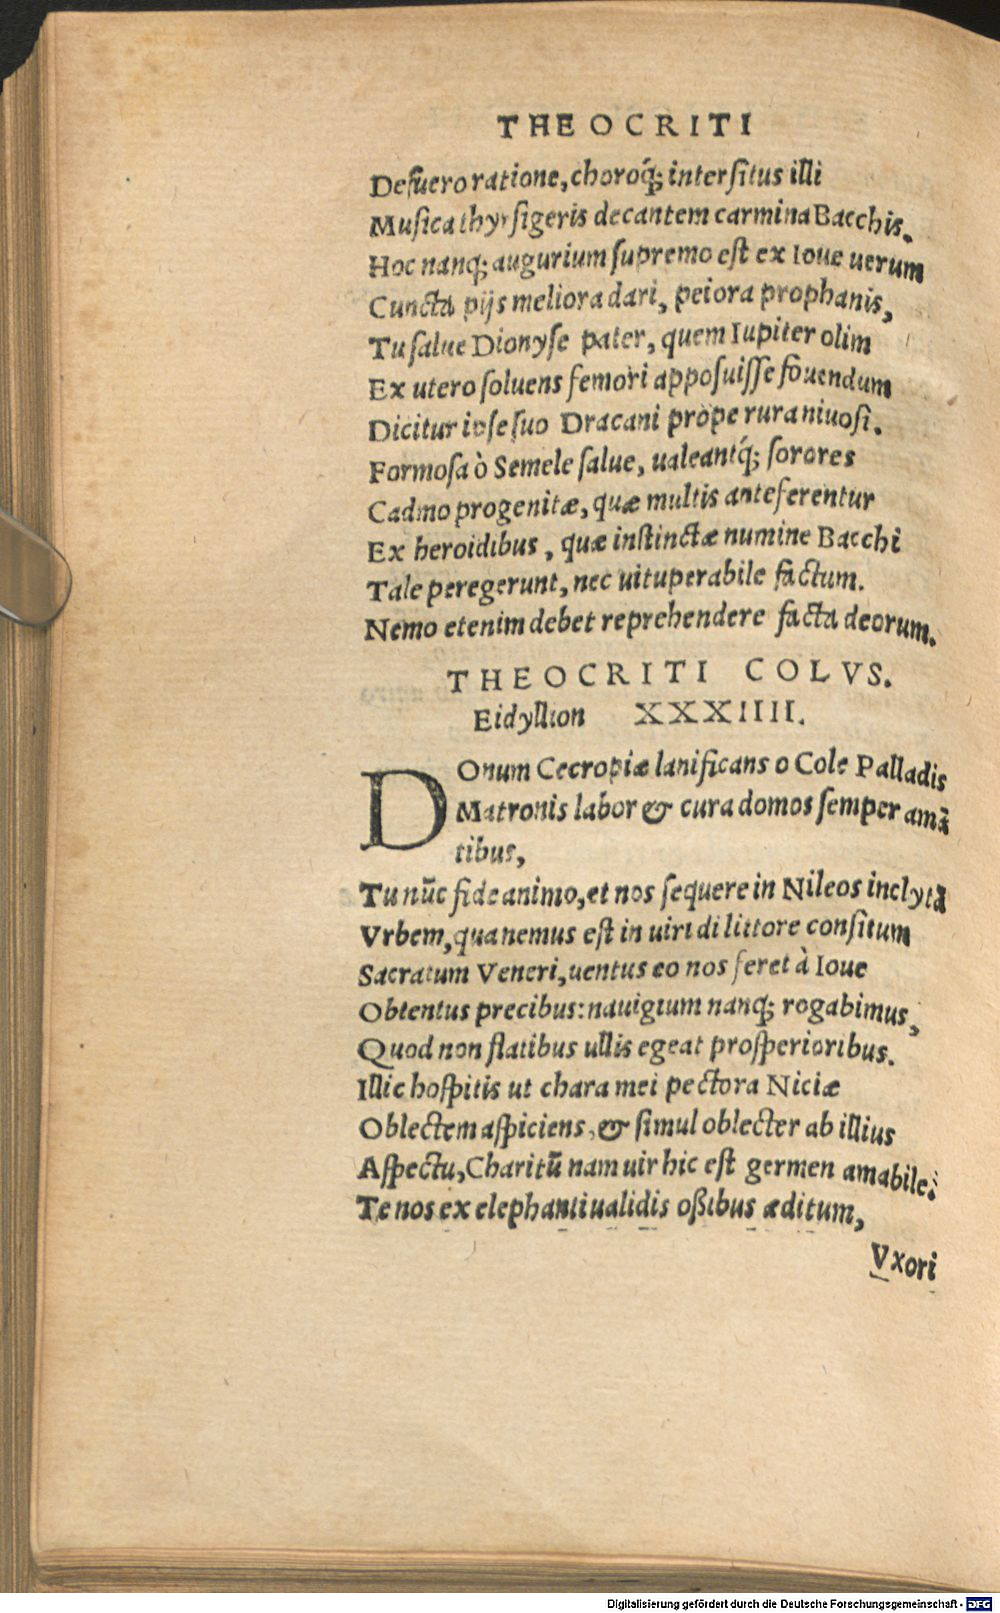 THEOCRITI
Defuero ratione, choroq́; intersitus illi
Musica thyrsigeris decantem carmina Bacchis.
Hoc nanq; augurium supremo est ex Ioue uerum
Cuncta pijs meliora dari, peiora prophanis,
Tu salue Dionyse pater, quem Iupiter olim
Ex utero soluens femori apposuisse fouendum
Dicitur ipse suo Dracani prope rura niuosi.
Formosa ò Semele salue, ualeantq́; sorores
Cadmo progenitæ, quæ multis anteferentur
Ex heroidibus, quæ instinctæ numine Bacchi
Tale peregerunt, nec uituperabile factum.
Nemo etenim debet reprehendere facta deorum.
THEOCRITI COLVS.
Eidyllion XXXIIII.
DOnum Cecropiæ lanificans o Cole Palladis
Matronis labor & cura domos semper amā
tibus,
Tu nūc fide animo, et nos sequere in Nileos inclytā
Vrbem, qua nemus est in uiridi littore consitum
Sacratum Veneri, uentus eo nos feret à Ioue
Obtentus precibus: nauigium nanq; rogabimus,
Quod non flatibus ullis egeat prosperioribus.
Illic hospitis ut chara mei pectora Niciæ
Oblectem aspiciens, & simul oblecter ab illius
Aspectu, Charitū nam uir hic est germen amabile:
Te nos ex elephanti ualidis oßibus æditum,
Vxori
Digitalisierung gefördert durch die Deutsche Forschungsgemeinschaft - DFG